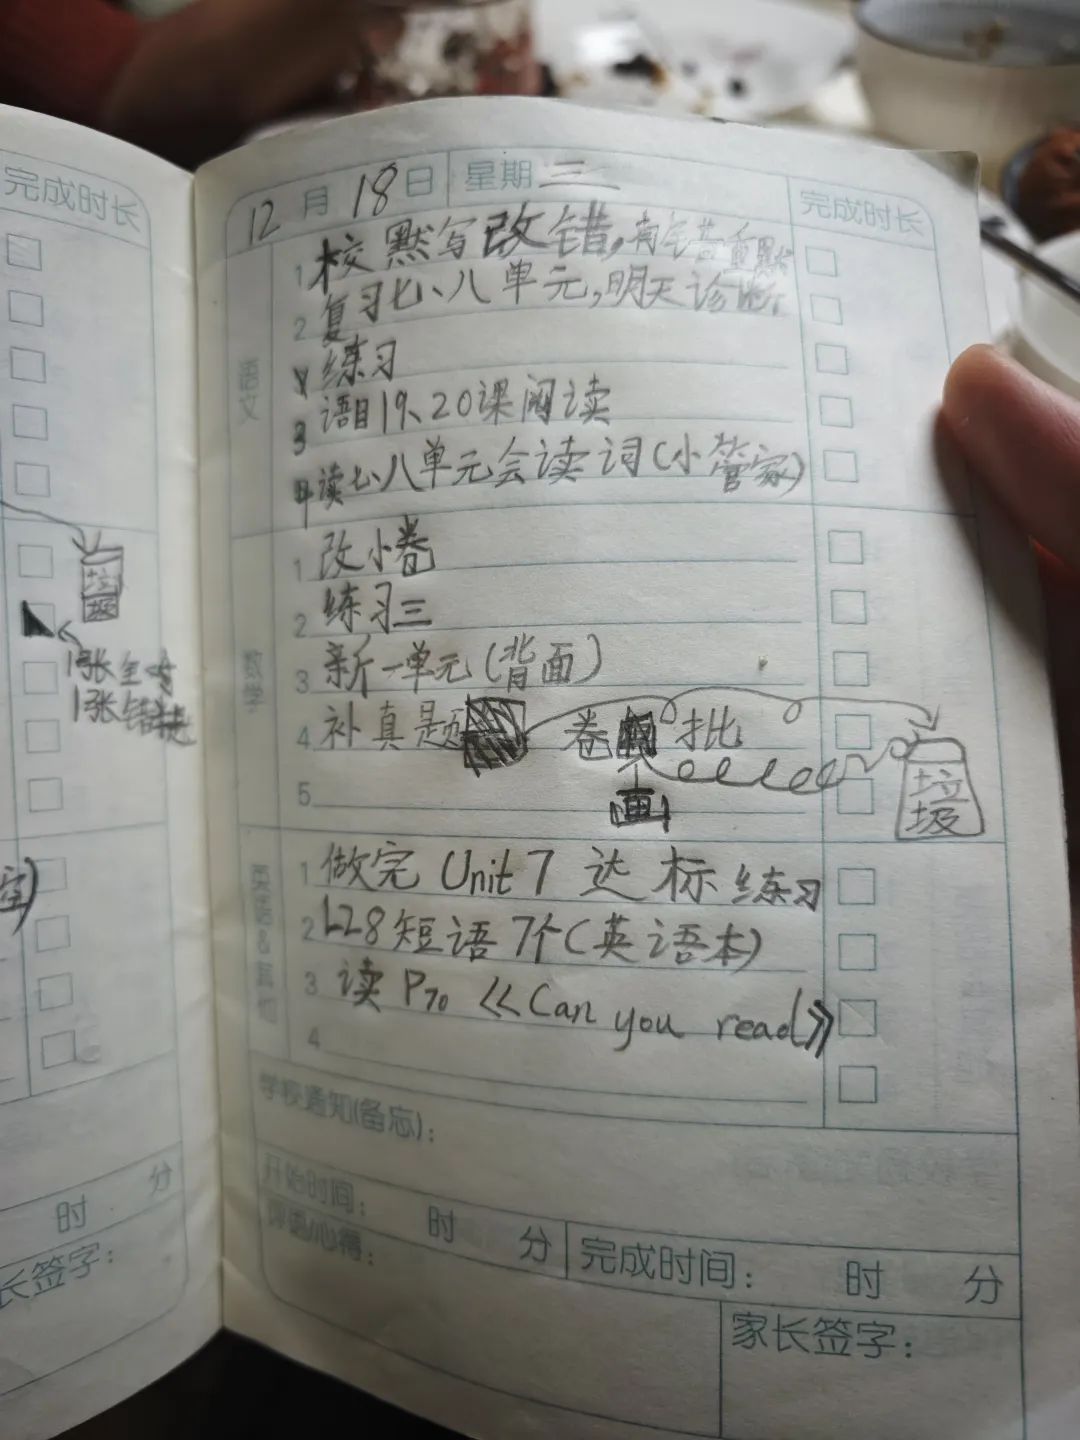 完成时长
垃
圾
1张全对
1张错
时
分
长签字：
12月18日 星期三 完成时长
语文
1 校默写改错，有错重默
2 复习七、八单元，明天诊断
练习
3 语目19、20课阅读
4 读七、八单元会读词(小管家)
数学
1 改小卷
2 练习三
3 新一单元(背面)
4 补真题 卷 批
画
垃
圾
5
英语&其他
1 做完Unit7达标练习
2 L28短语7个(英语本)
3 读P70 《Can you read》
4
学校通知(备忘)：
开始时间： 时 分 完成时间： 时 分
评语/心得：
家长签字：